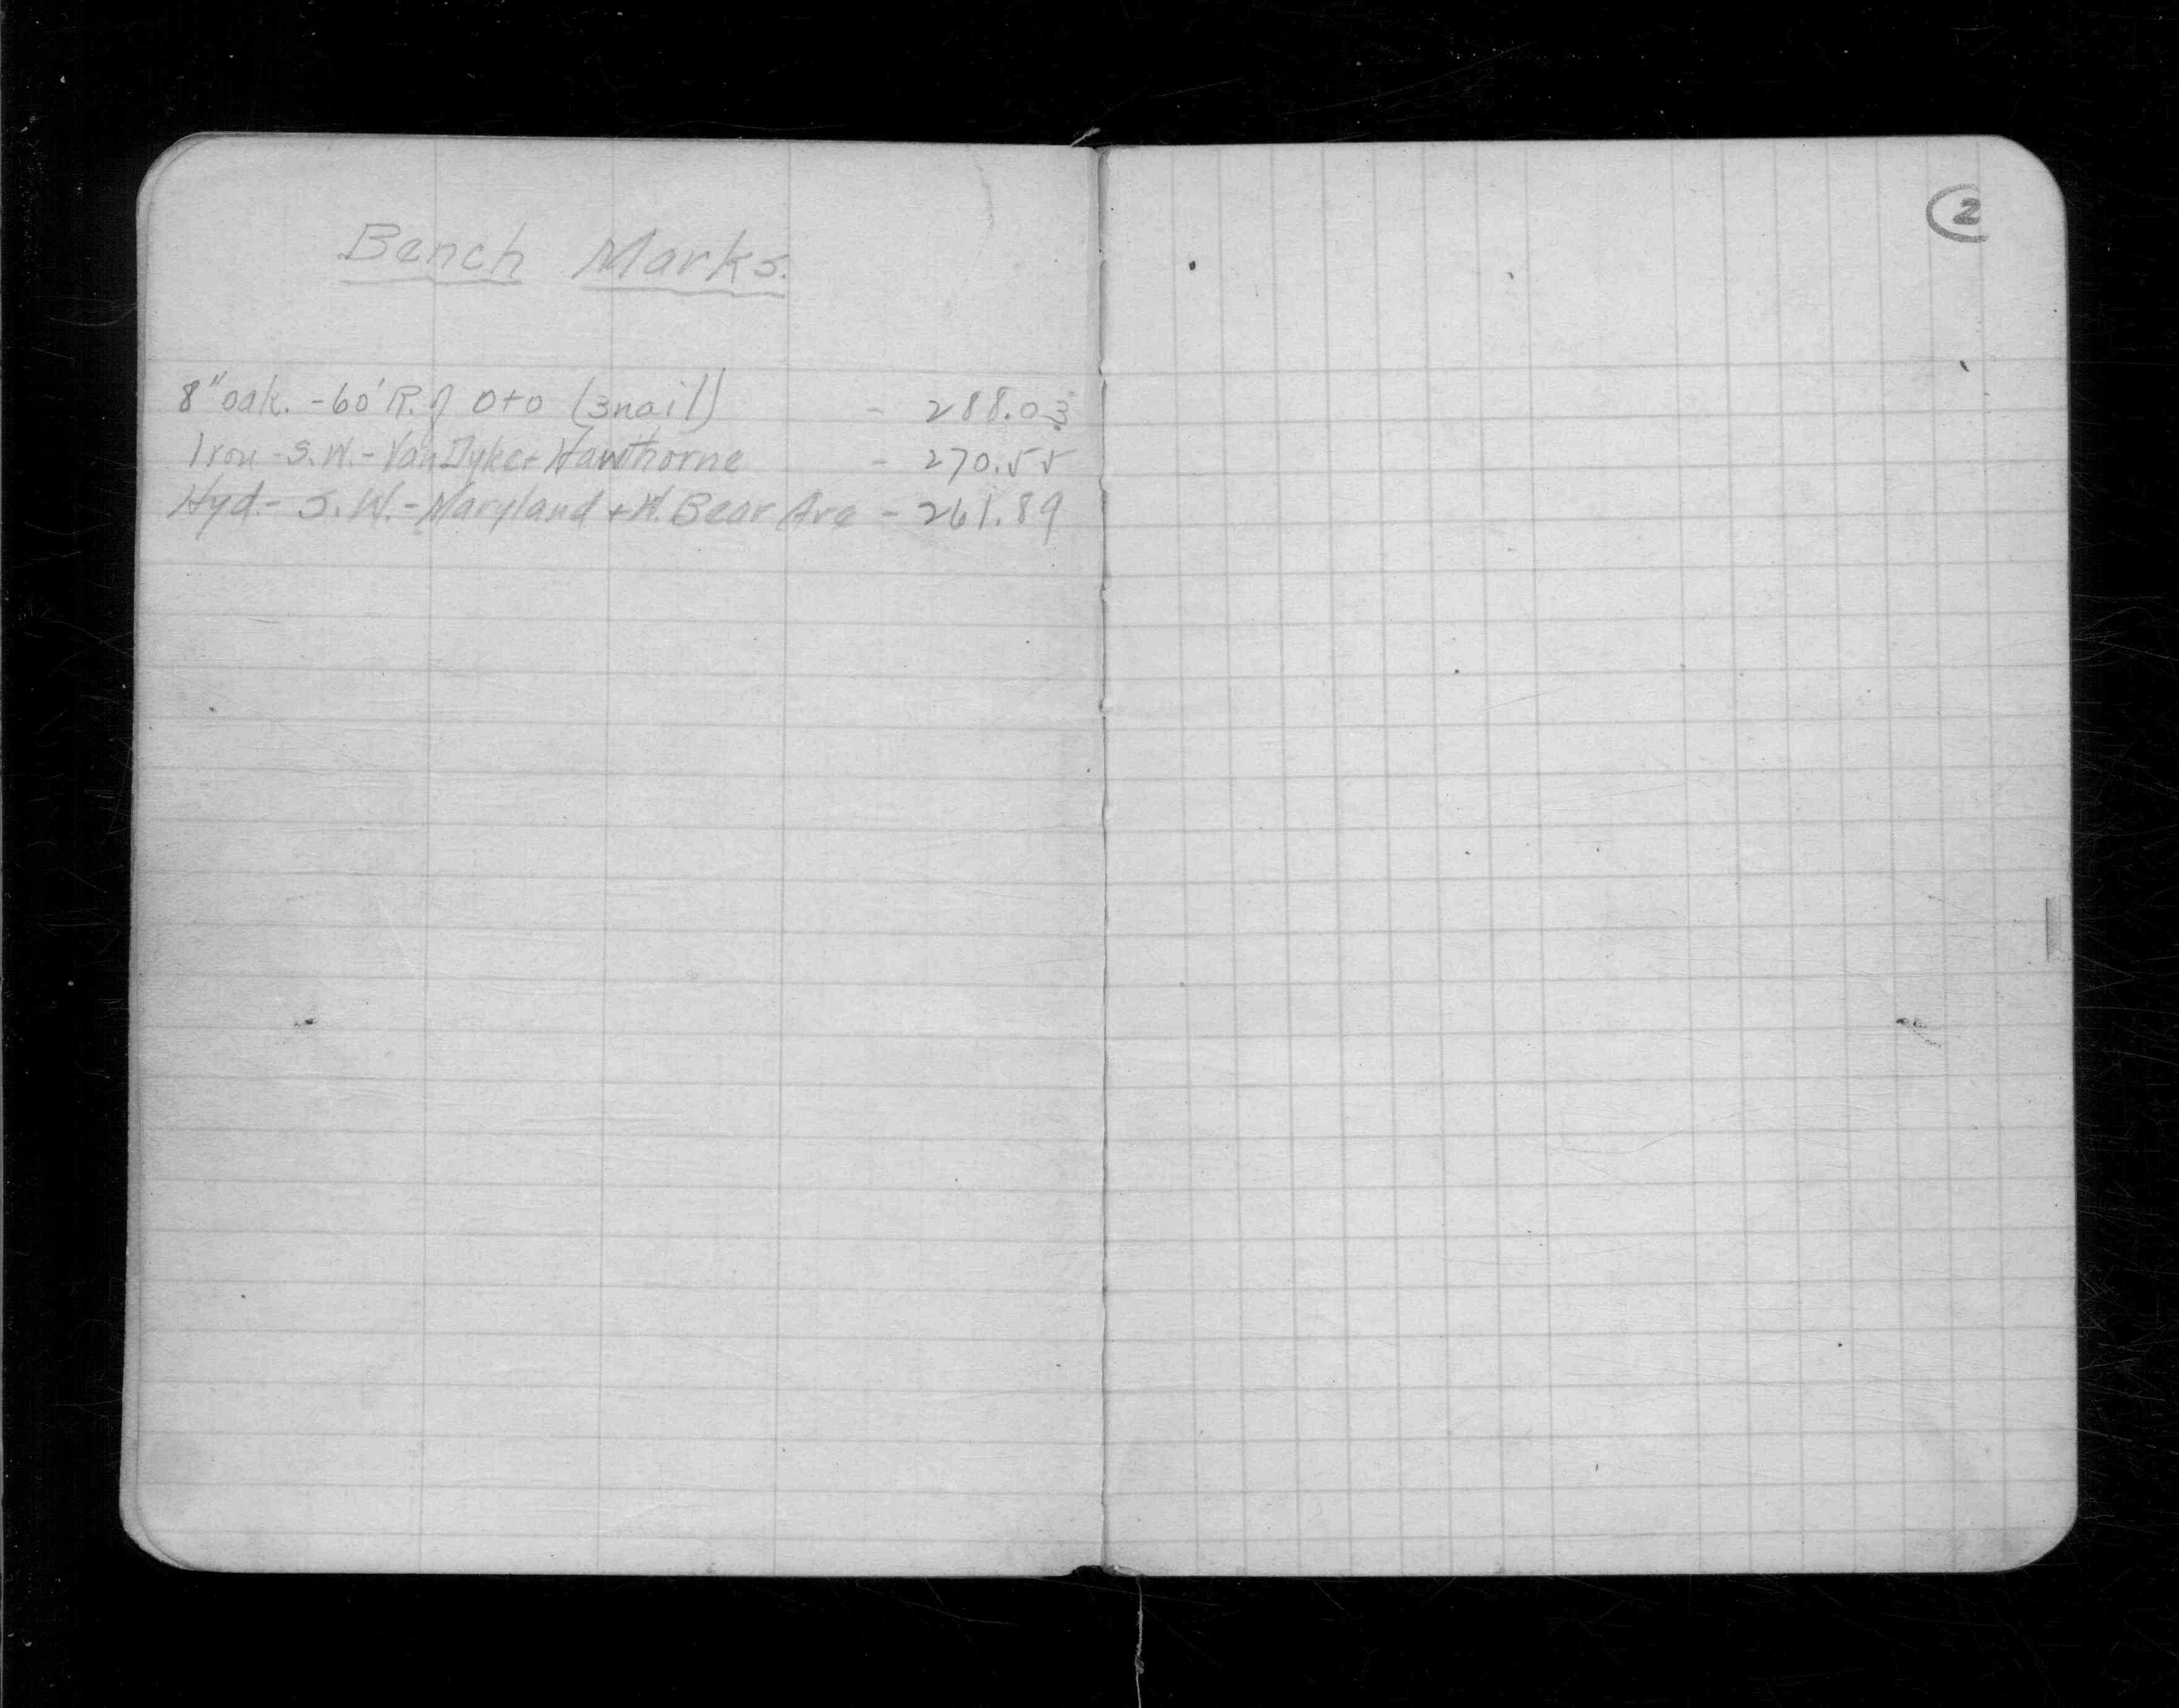 Bench Marks.
2
8" oak. - 60' R. of 0+0 (3nail) - 288.03
Iron - S.W. - Van Dyke + Hawthorne - 270.55
Hyd. - S.W. - Maryland + W. Bear Ave - 261.89